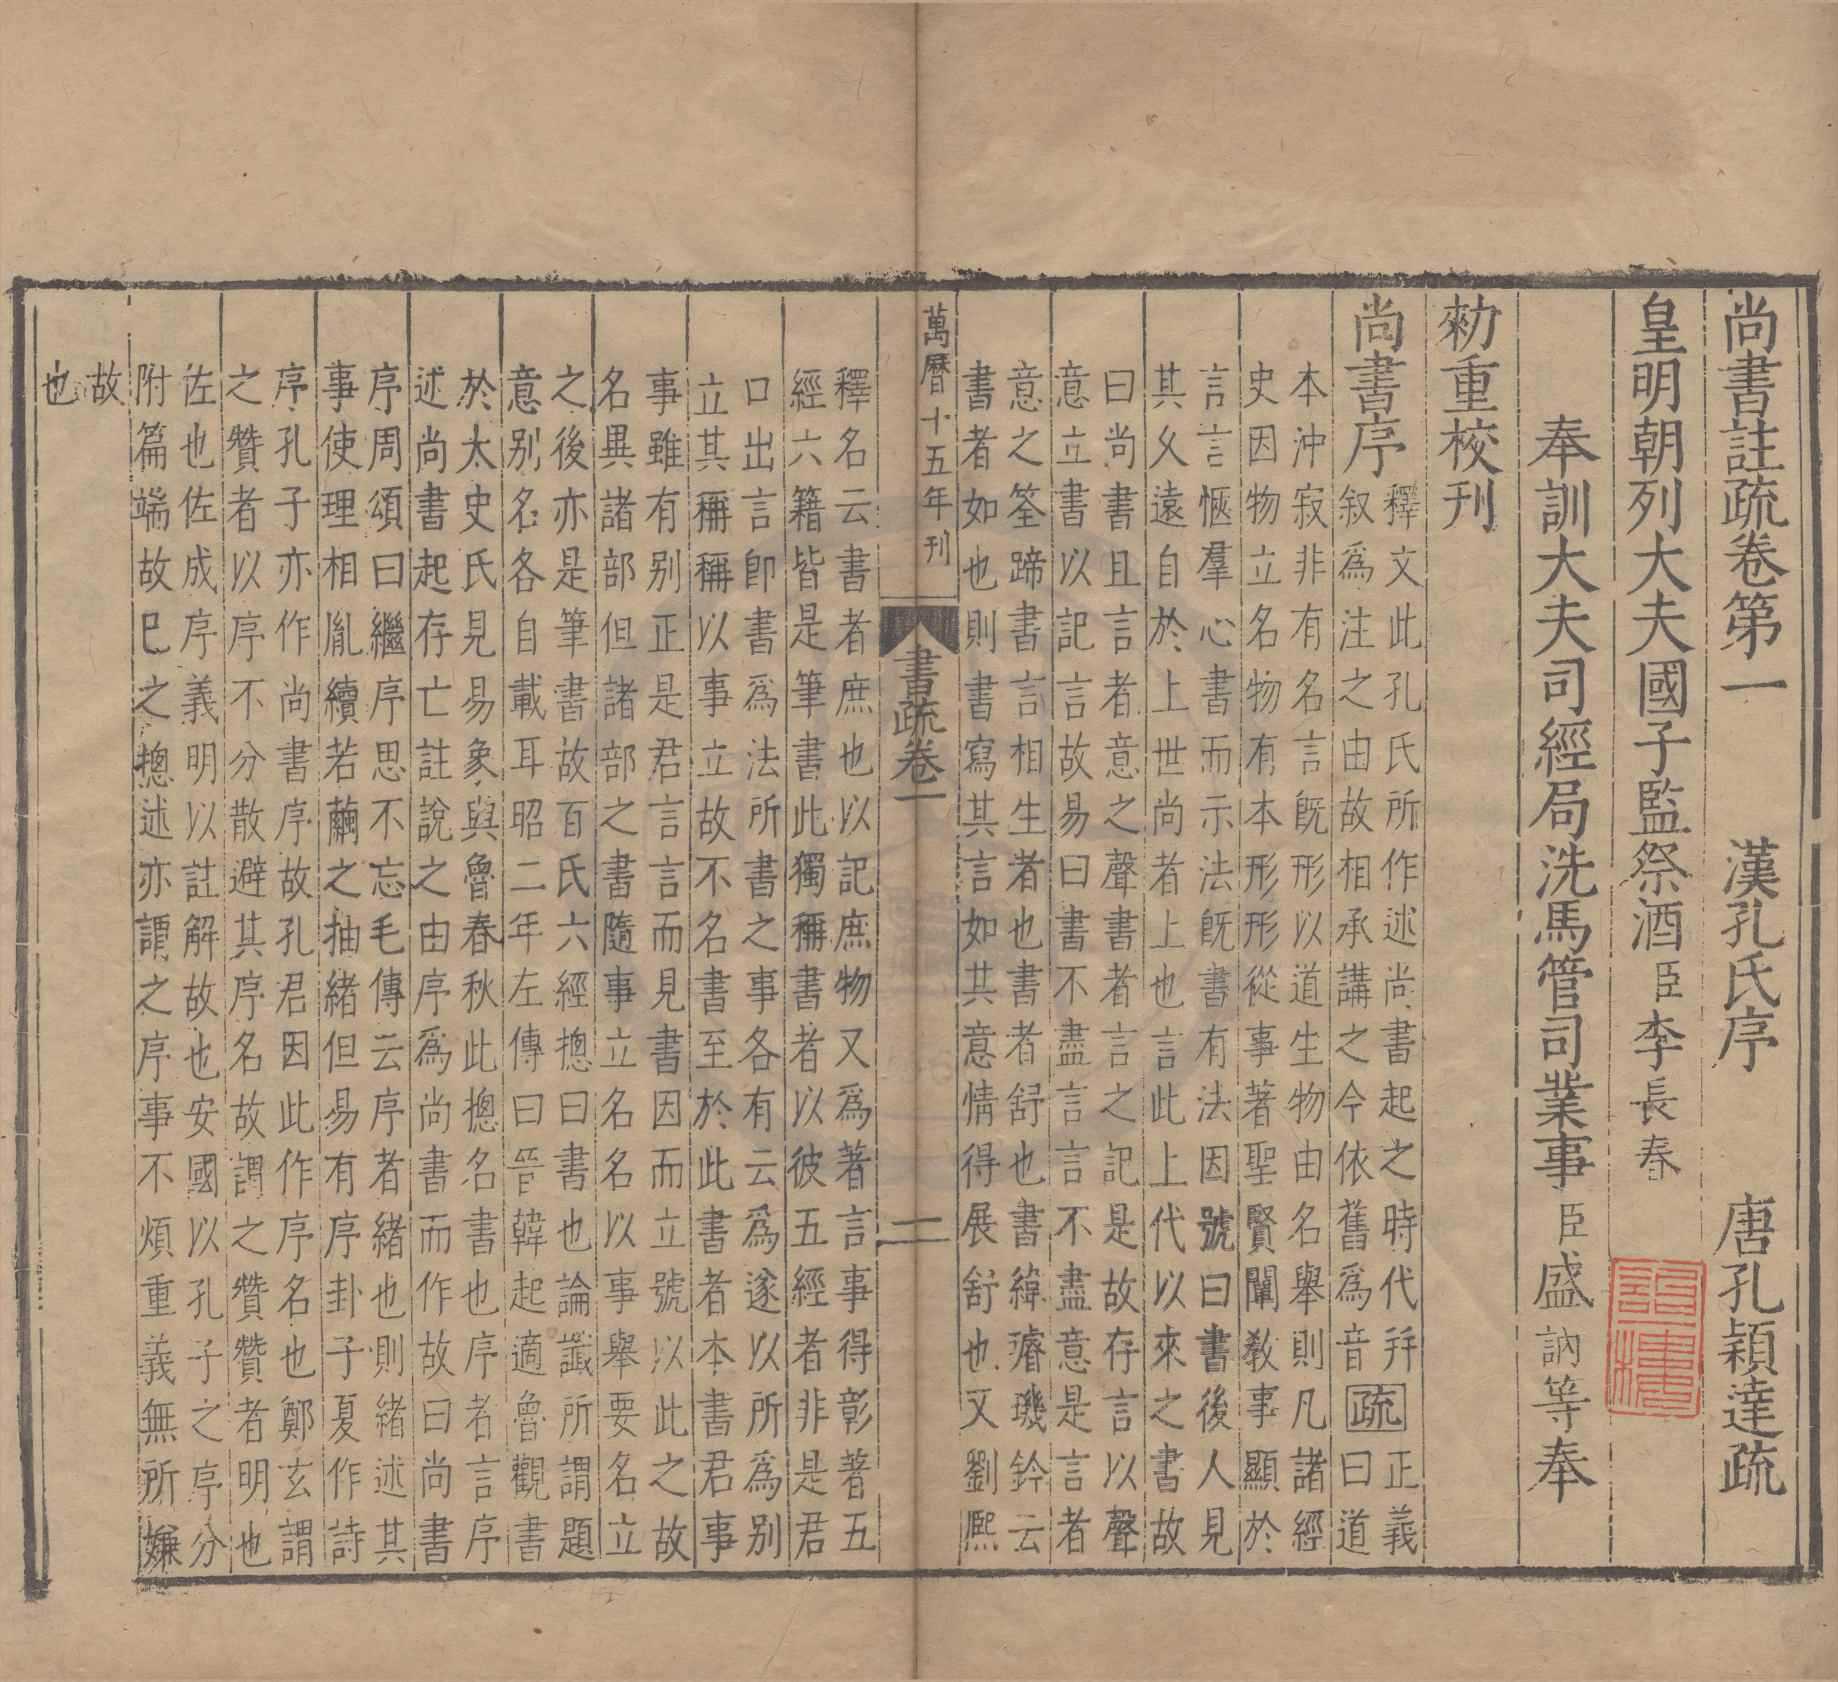 尚書註疏卷第一　漢孔氏序　唐孔穎達疏
皇明朝列大夫國子監祭酒臣李長春
奉訓大夫司經局洗馬管司業事臣盛訥等奉
勑重校刊
尚書序
釋文此孔氏所作述尚書起之時代并
叙爲注之由故相承講之今依舊爲音
疏
正義
曰道
本沖寂非有名言既形以道生物由名舉則凡諸經
史因物立名物有本形形從事著聖賢闡教事顯於
言言愜羣心書而示法既書有法因號曰書後人見
其久遠自於上世尚者上也言此上代以來之書故
曰尚書且言者意之聲書者言之記是故存言以聲
意立書以記言故易曰書不盡言言不盡意是言者
意之筌蹄書言相生者也書者舒也書緯璿璣鈐云
書者如也則書寫其言如其意情得展舒也又劉熙
萬曆十五年刊
書疏卷一
一
釋名云書者庶也以記庶物又爲著言事得彰著五
經六籍皆是筆書此獨稱書者以彼五經者非是君
口出言卽書爲法所書之事各有云爲遂以所爲别
立其稱稱以事立故不名書至於此書者本書君事
事雖有别正是君言言而見書因而立號以此之故
名異諸部但諸部之書隨事立名名以事舉要名立
之後亦是筆書故百氏六經摠曰書也論讖所謂題
意别名各自載耳昭二年左傳曰晉韓起適魯觀書
於太史氏見易象與魯春秋此摠名書也序者言序
述尚書起存亡註說之由序爲尚書而作故曰尚書
序周頌曰繼序思不忘毛傳云序者緒也則緒述其
事使理相胤續若繭之抽緒但易有序卦子夏作詩
序孔子亦作尚書序故孔君因此作序名也鄭玄謂
之贊者以序不分散避其序名故謂之贊贊者明也
佐也佐成序義明以註解故也安國以孔子之序分
附篇端故巳之摠述亦謂之序事不煩重義無所嫌
故
也